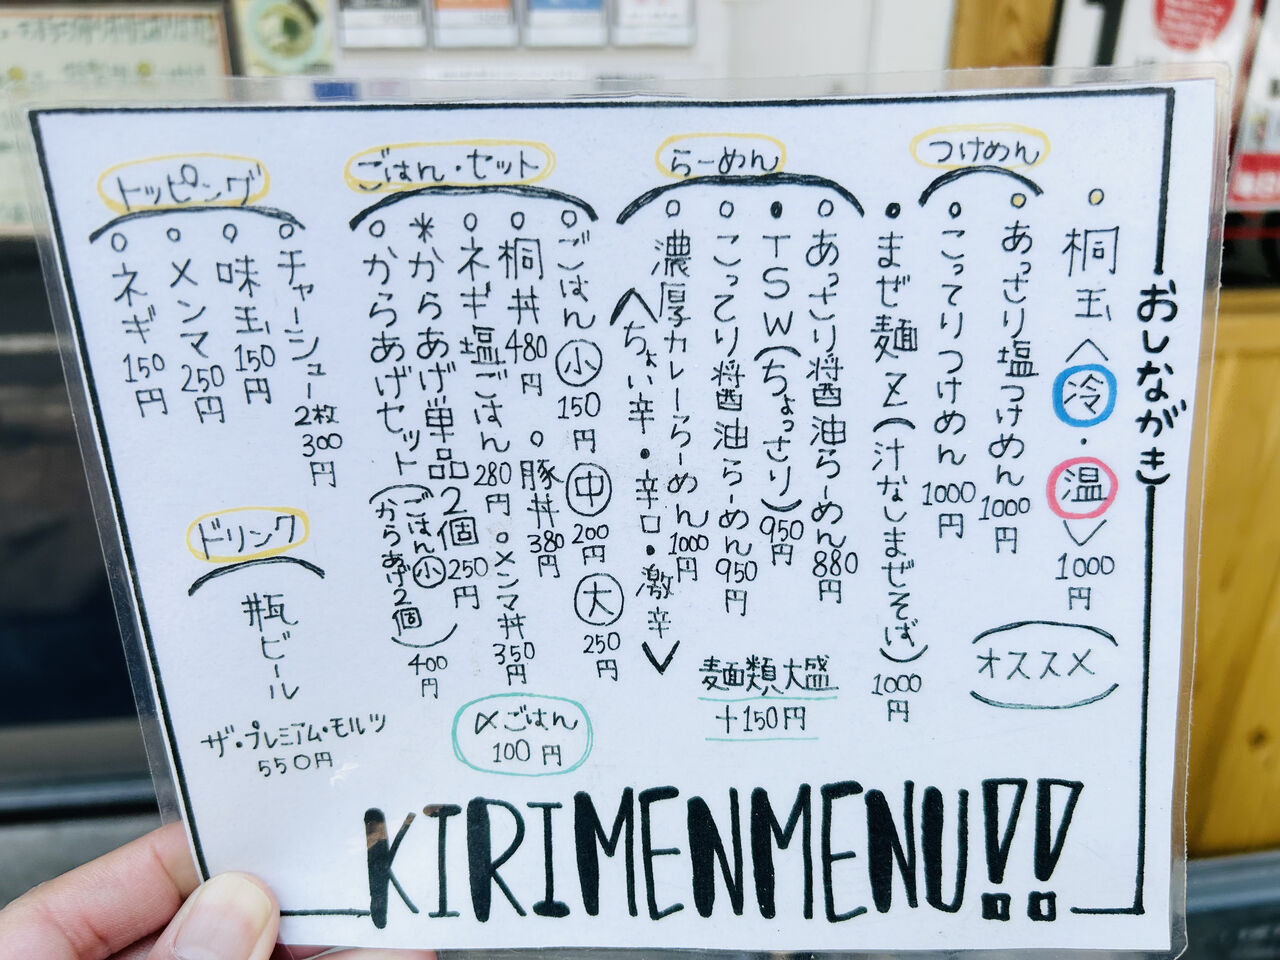 おしながき
桐玉〈冷・温〉1000円
つけめん
あっさり塩つけめん 1000円
こってりつけめん 1000円
まぜ麺Z(汁なしまぜそば) 1000円
オススメ
らーめん
あっさり醤油らーめん 880円
TSW(ちょっさり) 950円
こってり醤油らーめん 950円
濃厚カレーらーめん 1000円
〈ちょい辛・辛口・激辛〉
麺類大盛
+150円
ごはん・セット
ごはん 小 150円 中 200円 大 250円
桐丼 480円
豚丼 380円
ネギ塩ごはん 280円
メンマ丼 350円
*からあげ単品2個 250円
からあげセット(ごはん小 からあげ2個) 400円
〆ごはん
100円
トッピング
チャーシュー2枚 300円
味玉 150円
メンマ 250円
ネギ 150円
ドリンク
瓶ビール
ザ・プレミアム・モルツ
550円
KIRIMENMENU!!